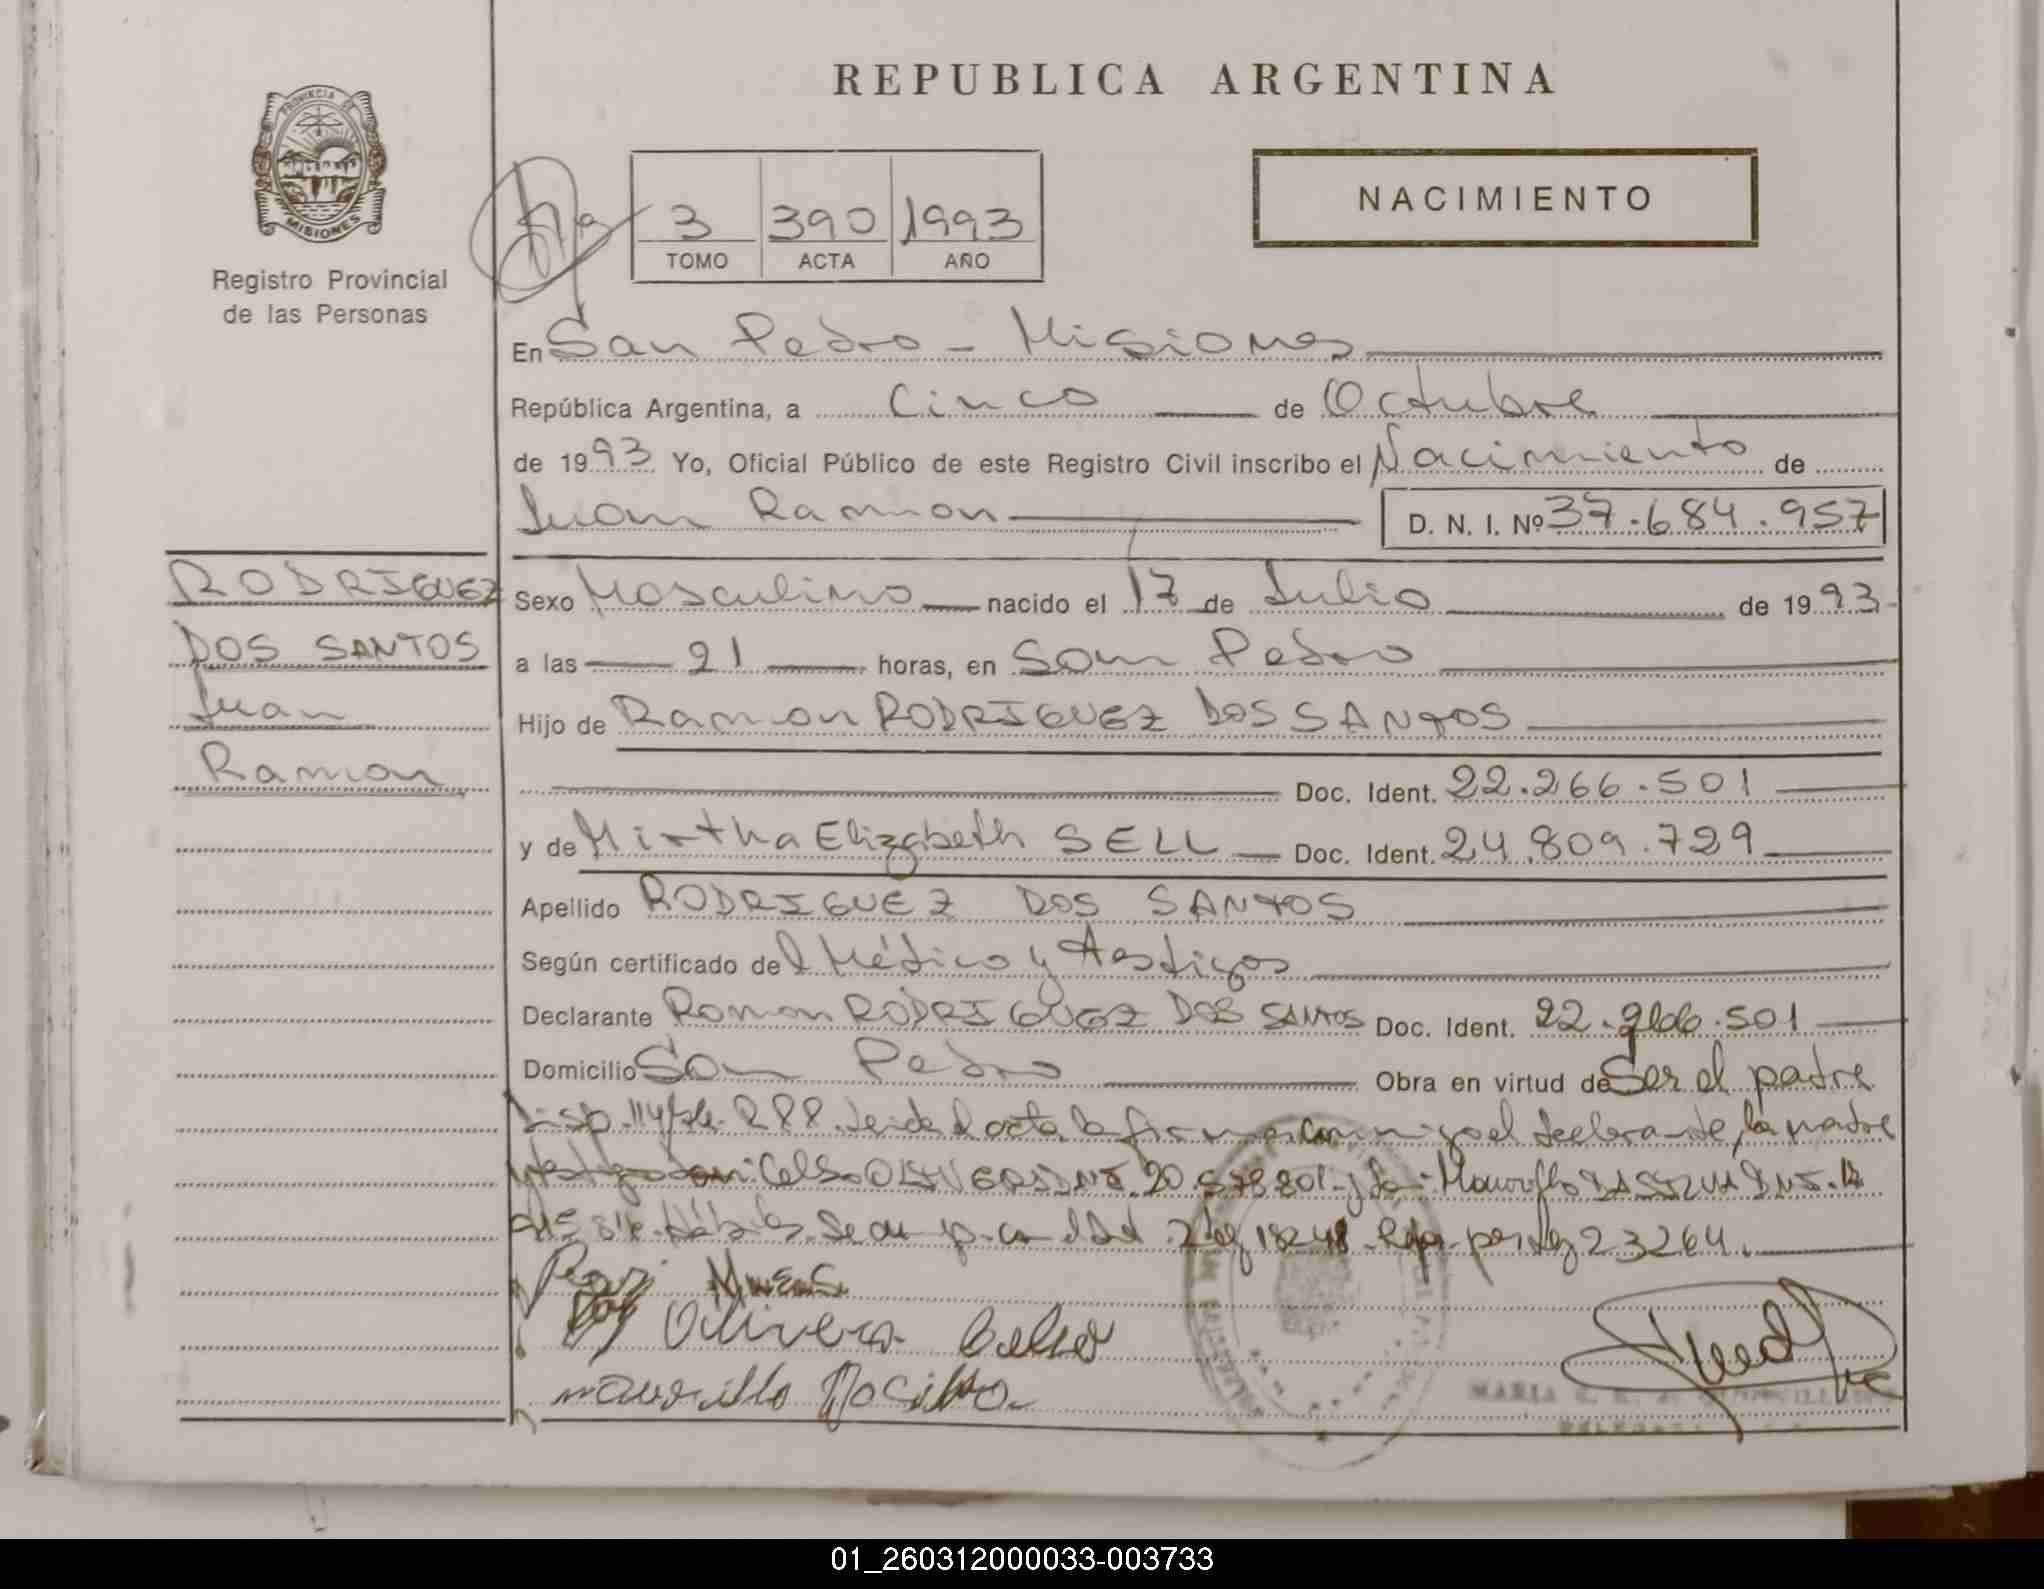 REPUBLICA ARGENTINA
PROVINCIA DE
MISIONES
Registro Provincial
de las Personas
3 390 1993
TOMO ACTA AÑO
NACIMIENTO
En San Pedro - Misiones
República Argentina, a Cinco de Octubre
de 1993 Yo, Oficial Público de este Registro Civil inscribo el Nacimiento de
Juan Ramon D. N. I. Nº 37.684.957
RODRIGUEZ
DOS SANTOS
Juan
Ramon
Sexo Masculino nacido el 17 de Julio de 1993
a las 21 horas, en San Pedro
Hijo de Ramon RODRIGUEZ DOS SANTOS
Doc. Ident. 22.266.501
y de Mirtha Elizabeth SELL Doc. Ident. 24.809.729
Apellido RODRIGUEZ DOS SANTOS
Según certificado del Médico y testigos
Declarante Ramon RODRIGUEZ DOS SANTOS Doc. Ident. 22.266.501
Domicilio San Pedro Obra en virtud de Ser el padre
Leida el acta la firman conmigo el declarante, la madre
Celso y Don: Maurillo
por ley 23264.
Olivera Celso
Maurillo
MARIA
01_260312000033-003733